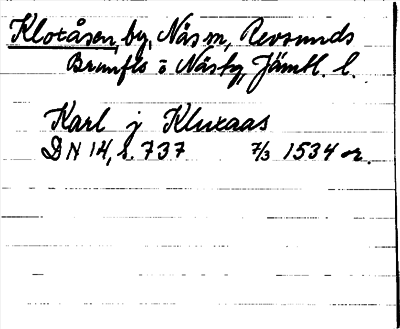 Klotåsen, by, Näs sn, Revsunds
Brunflo o Näs tg, Jämtl. l.
Karl j Kluxaas
DN 14, s. 737 7/3 1534 or.